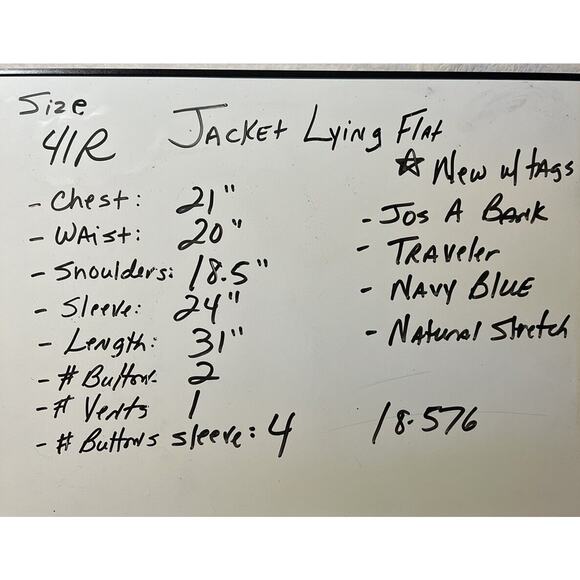 Size
41R
Jacket Lying Flat
☆ New w/ tags
- Chest: 21"
- Waist: 20"
- Shoulders: 18.5"
- Sleeve: 24"
- Length: 31"
- # Button 2
- # Vents 1
- # Buttons sleeve: 4
- Jos A Bank
- Traveler
- Navy Blue
- Natural Stretch
18-576